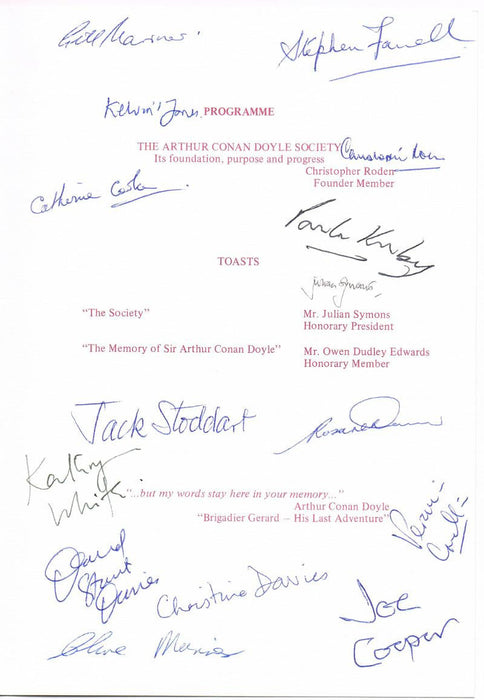 Stephen Farrell
Kelvin Jones
PROGRAMME
THE ARTHUR CONAN DOYLE SOCIETY
Its foundation, purpose and progress
Christopher Roden
Founder Member
Catherine Cooke
TOASTS
Julian Symons
"The Society"
Mr. Julian Symons
Honorary President
"The Memory of Sir Arthur Conan Doyle"
Mr. Owen Dudley Edwards
Honorary Member
Jack Stoddart
Kathryn
White
"...but my words stay here in your memory..."
Arthur Conan Doyle
"Brigadier Gerard – His Last Adventure"
David
Stuart
Davies
Christine Davies
Joe
Cooper